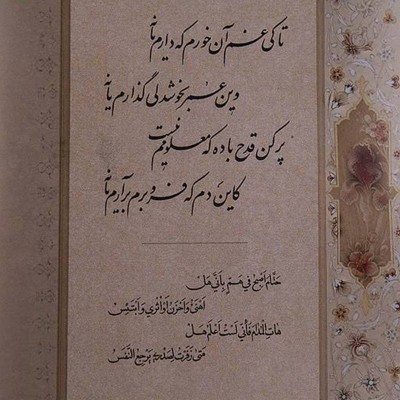 تا کی غم آن خورم که دارم یا نه
وین عمر بخوشدلی گذارم یا نه
پر کن قدح باده که معلومم نیست
کاین دم که فرو برم برآرم یا نه
حتام اصبح في هم بأني هل
اهنى واحزن او اثري وابتئس
هات المدام فأني لست اعلم هل
متى زفرت لصدري يرجع النفس